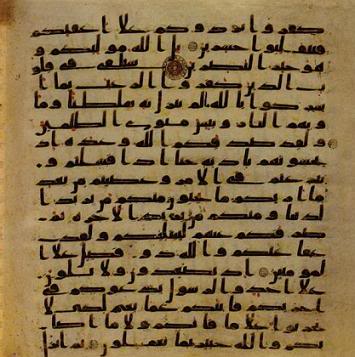 كفروا يردوكم على اعقبكم
فتنقلبوا خسرين بل الله موليكم و
هو خير النصرين سنلقى فى قلو
ب الذين كفروا الرعب بما ا
شركوا بالله ما لم ينزل به سلطنا وما
ويهم النار وبئس مثوى الظلمين
ولقد صدقكم الله وعده اذ
تحسونهم باذنه حتى اذا فشلتم و
تنزعتم فى الامر وعصيتم من بعد
ما اريكم ما تحبون منكم من يريد ا
لدنيا ومنكم من يريد الاخرة ثم
صرفكم عنهم ليبتليكم ولقد
عفا عنكم والله ذو فضل على ا
لمومنين اذ تصعدون ولا تلون
على احد والرسول يدعوكم فى
اخريكم فاثبكم غما بغم لكيلا
تحزنوا على ما فاتكم ولا ما اصا
بكم والله خبير بما تعملون ثم انزل